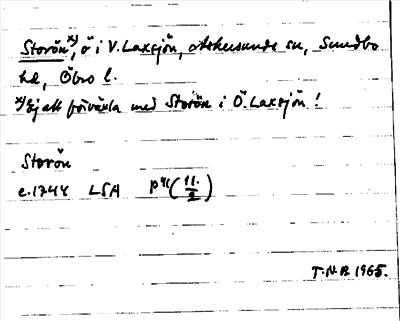 Storön x), ö i V. Laxsjön, Askersunds sn, Sundbo
hd, Öbro l.
x) Ej att förväxla med Storön i Ö. Laxsjön!
Storön
c. 1744 LSA P 41 (11/2)
T.N.B. 1965.